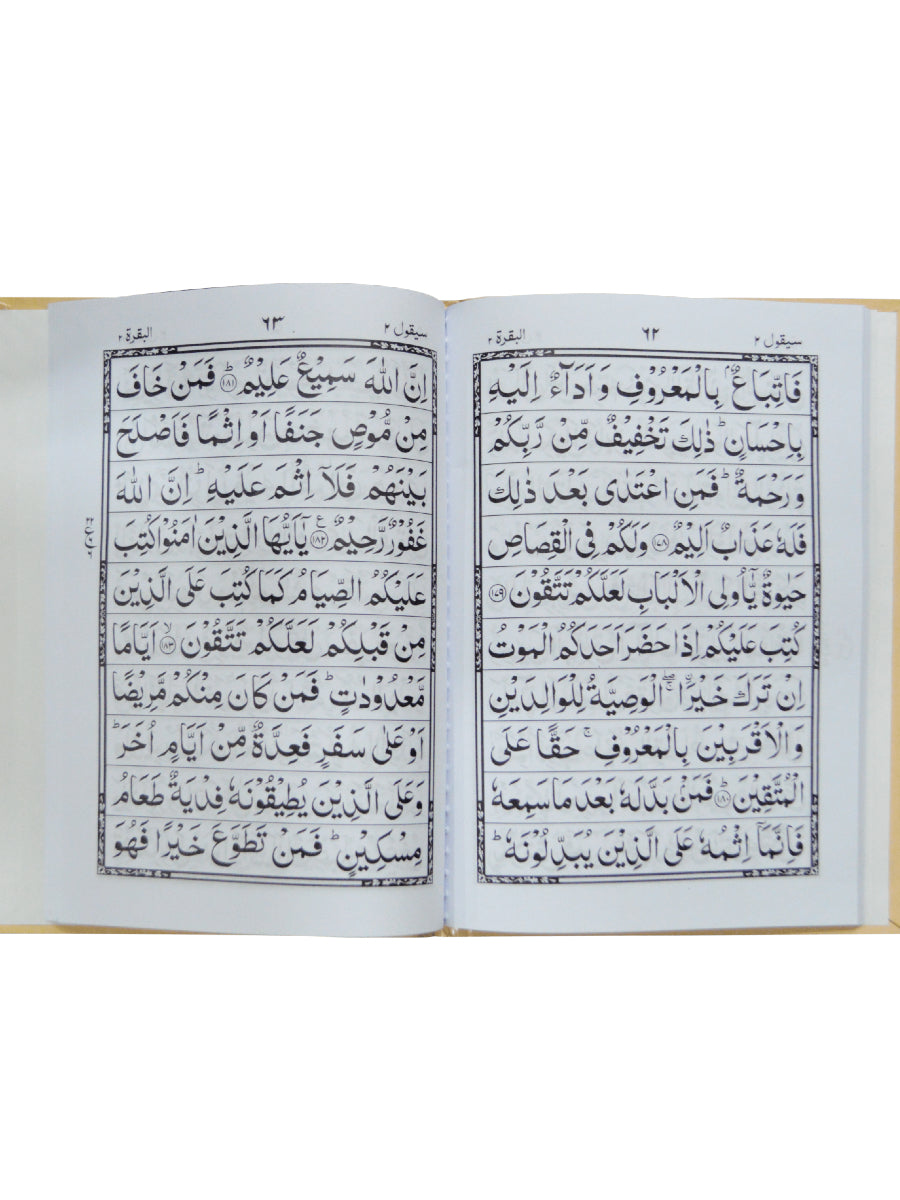 سيقول ٢
٦٢
البقرة ٢
فَاتِّبَاعٌۢ بِالْمَعْرُوْفِ وَاَدَآءٌ اِلَيْهِ
بِاِحْسَانٍ ؕ ذٰلِكَ تَخْفِيْفٌ مِّنْ رَّبِّكُمْ
وَرَحْمَةٌ ؕ فَمَنِ اعْتَدٰى بَعْدَ ذٰلِكَ
فَلَهٗ عَذَابٌ اَلِيْمٌ ﴿١٧٨﴾ وَلَكُمْ فِى الْقِصَاصِ
حَيٰوةٌ يّٰۤاُولِى الْاَلْبَابِ لَعَلَّكُمْ تَتَّقُوْنَ ﴿١٧٩﴾
كُتِبَ عَلَيْكُمْ اِذَا حَضَرَ اَحَدَكُمُ الْمَوْتُ
اِنْ تَرَكَ خَيْرًا ۖۚ الْوَصِيَّةُ لِلْوَالِدَيْنِ
وَالْاَقْرَبِيْنَ بِالْمَعْرُوْفِ ۚ حَقًّا عَلَى
الْمُتَّقِيْنَ ؕ ﴿١٨٠﴾ فَمَنْۢ بَدَّلَهٗ بَعْدَ مَا سَمِعَهٗ
فَاِنَّمَاۤ اِثْمُهٗ عَلَى الَّذِيْنَ يُبَدِّلُوْنَهٗ ؕ
سيقول ٢
٦٣
البقرة ٢
اِنَّ اللّٰهَ سَمِيْعٌ عَلِيْمٌ ؕ ﴿١٨١﴾ فَمَنْ خَافَ
مِنْ مُّوْصٍ جَنَفًا اَوْ اِثْمًا فَاَصْلَحَ
بَيْنَهُمْ فَلَاۤ اِثْمَ عَلَيْهِ ؕ اِنَّ اللّٰهَ
غَفُوْرٌ رَّحِيْمٌ ﴿١٨٢﴾ ع يٰۤاَيُّهَا الَّذِيْنَ اٰمَنُوْا كُتِبَ
عَلَيْكُمُ الصِّيَامُ كَمَا كُتِبَ عَلَى الَّذِيْنَ
مِنْ قَبْلِكُمْ لَعَلَّكُمْ تَتَّقُوْنَ ۙ ﴿١٨٣﴾ اَيَّامًا
مَّعْدُوْدٰتٍ ؕ فَمَنْ كَانَ مِنْكُمْ مَّرِيْضًا
اَوْ عَلٰى سَفَرٍ فَعِدَّةٌ مِّنْ اَيَّامٍ اُخَرَ ؕ
وَعَلَى الَّذِيْنَ يُطِيْقُوْنَهٗ فِدْيَةٌ طَعَامُ
مِسْكِيْنٍ ؕ فَمَنْ تَطَوَّعَ خَيْرًا فَهُوَ